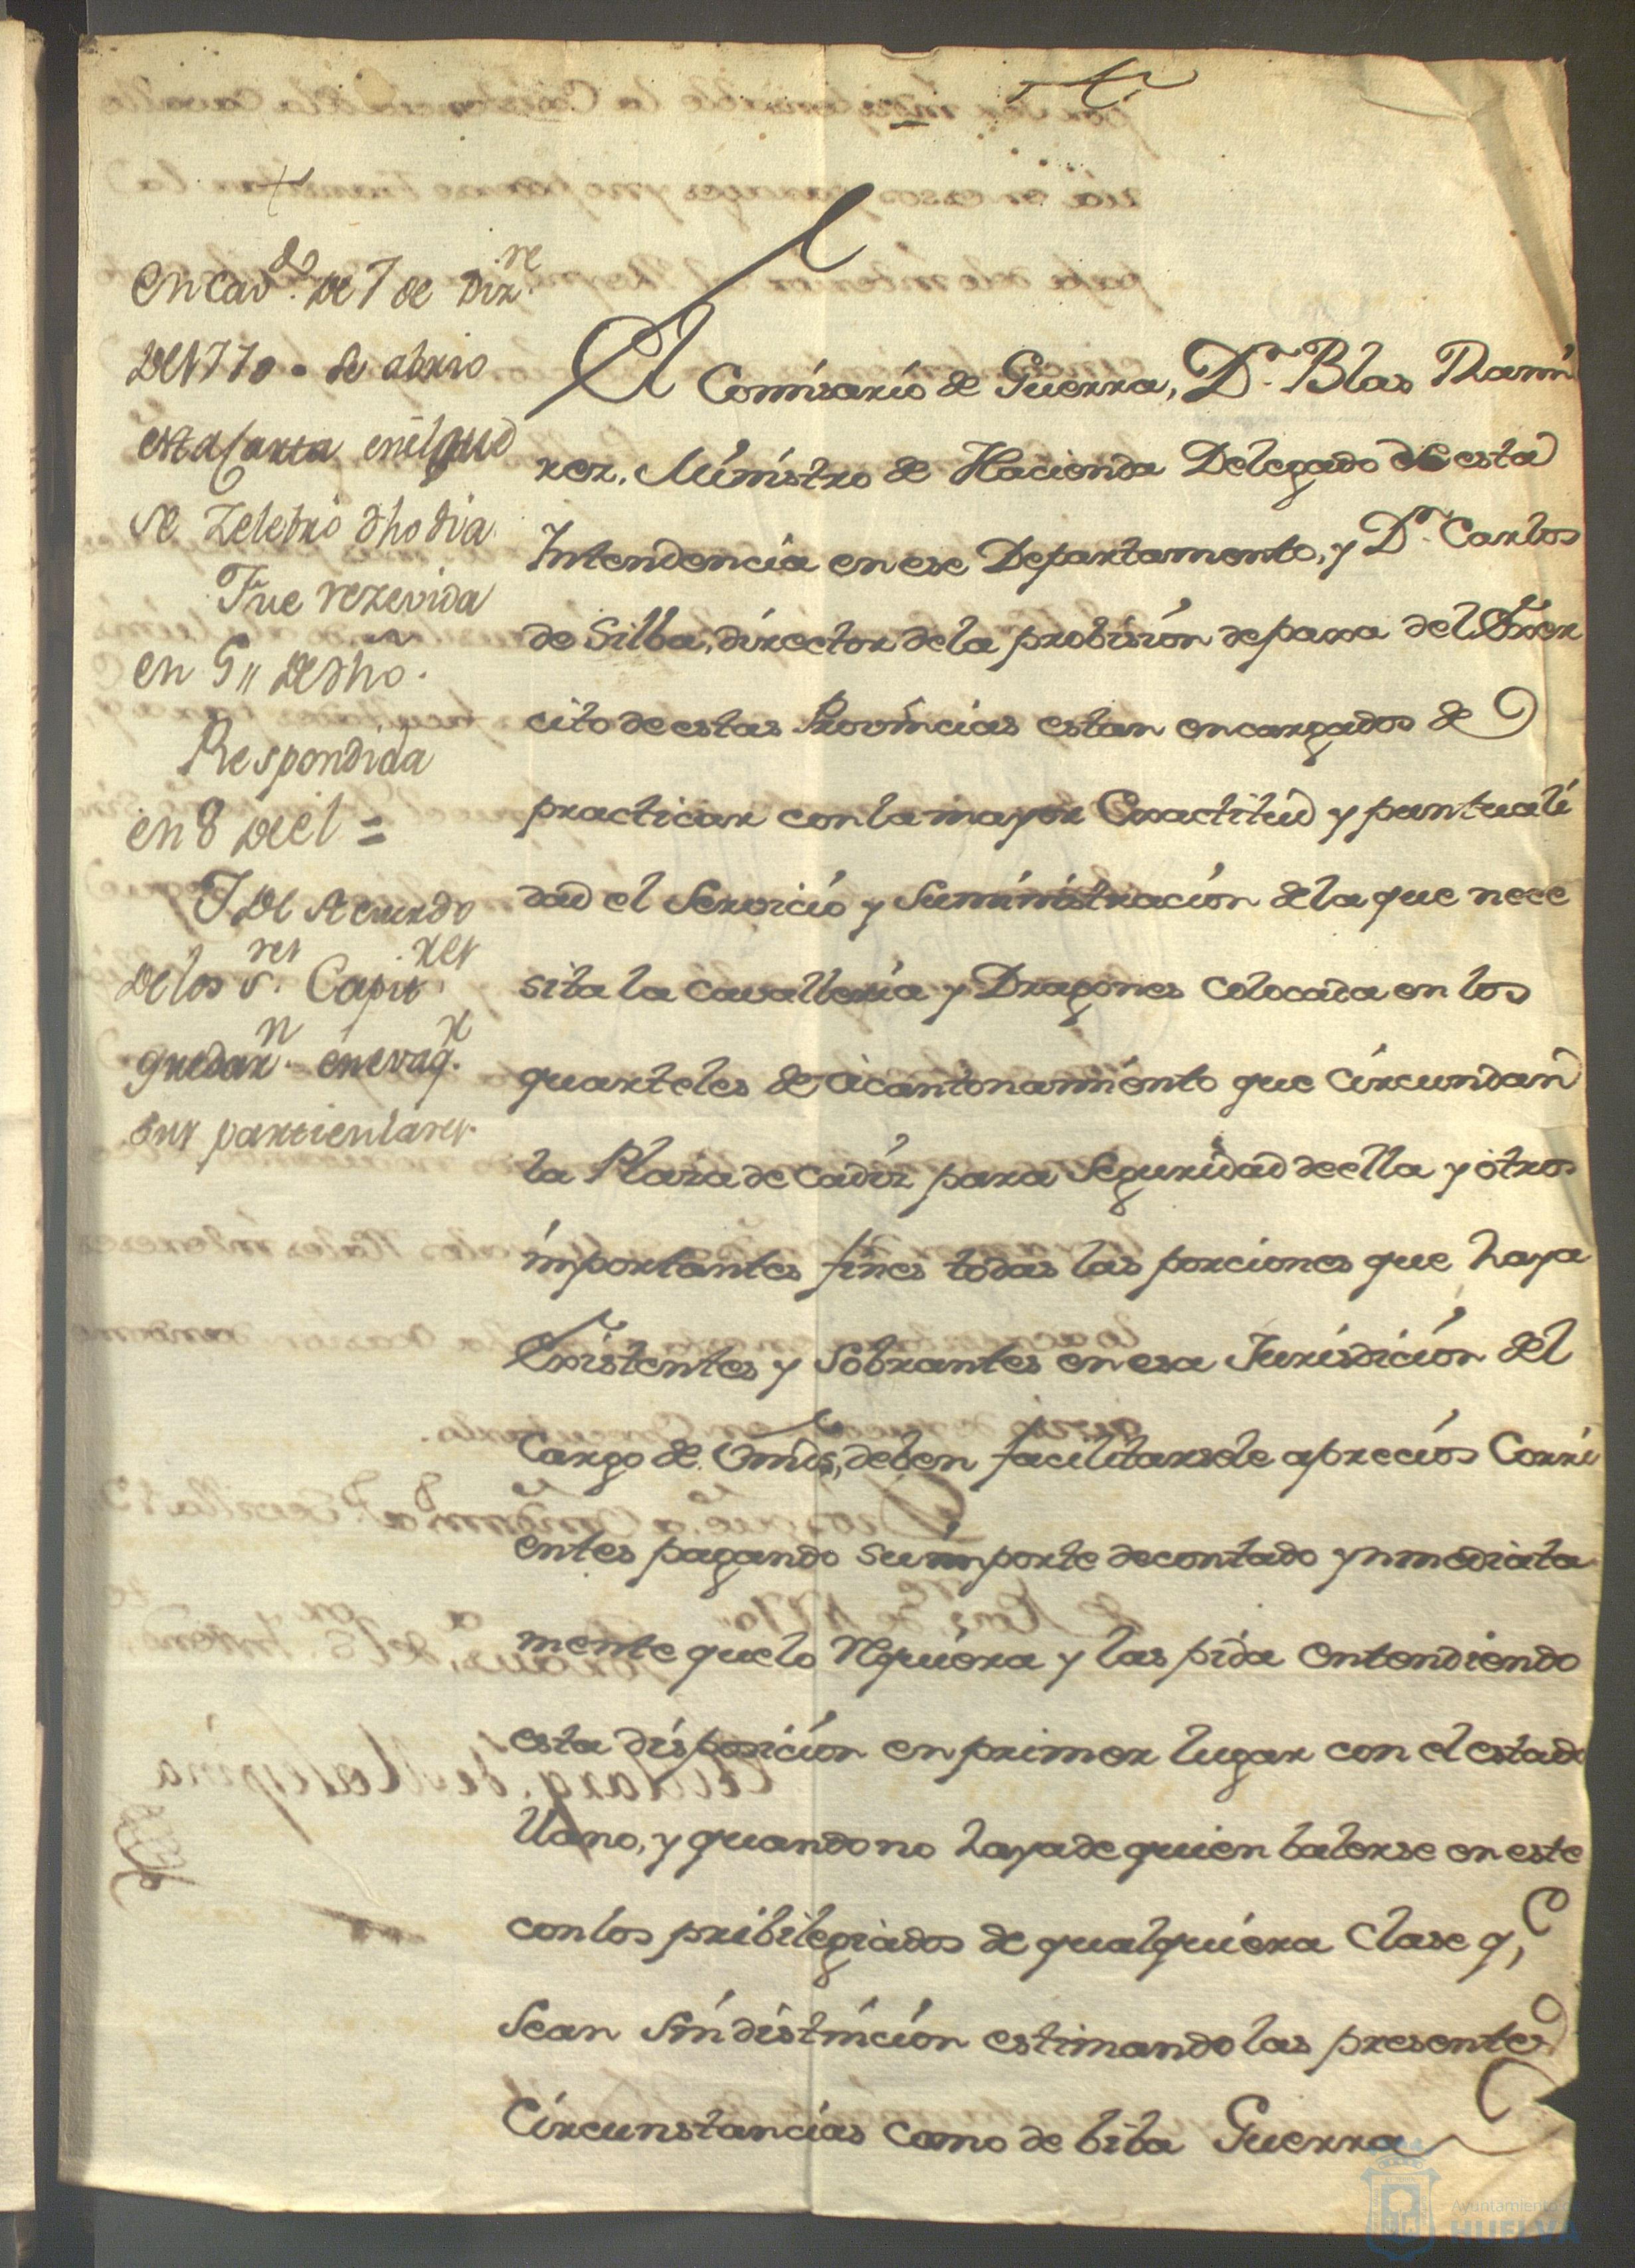 en cav.do de 7 de Diz.re
de 1770 . se abrio
esta Carta en el que
se Zelebro dho dia.
Fue rezevida
en 5,, de dho.
Respondida
en 8 del =
Y de Acuerdo
de los S.res Capit.res
quedar.n en evaq.r
sus particulares.
El Comisario de Guerra, D.n Blas Ramí
rez, Ministro de Hacienda Delegado de esta
Intendencia en ese Departamento, y D.n Carlos
de Silba, director de la probisión de paxa del Exer
cito de estas Provincias estan encargados de
practicar con la mayor Exactitud y puntuali
dad el Servicio y Suministración de la que nece
sita la Cavallería y Dragones Colocada en los
quarteles de acantonamiento que Circundan
la Plaza de Cadiz para Seguridad de ella y otros
importantes fines todas las porciones que haya
Existentes y Sobrantes en esa Jurisdición del
Cargo de Vmds, deben facilitarsele a precios Corri
entes pagando su importe de contado ynmediata
mente que lo Requiera y las pida entendiendo
esta disposición en primer lugar con el estado
llano, y quando no haya de quien balerse en este
con los pribilegiados de qualquiera Clase q,e
Sean Sin distinción estimando las presentes
Circunstancias como de biba Guerra
Ayuntamiento de
HUELVA